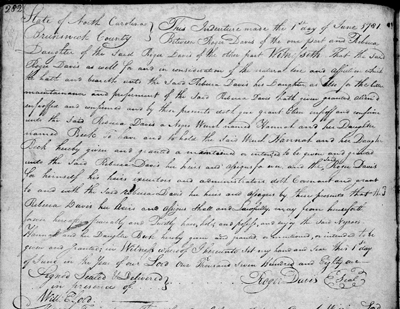 282
State of North Carolina
Brunswick County
This Indenture made the 1st day of June 1781
Between Roger Davis of the one part and Rebecca
Daughter of the Said Roger Davis of the other part Witnesseth that the Said
Roger Davis as well for and in consideration of the natural love and affection which
he hath and beareth unto the Said Rebecca Davis his Daughter as also for the better
maintainance and preferment of the Said Rebecca Davis hath given granted aliened
enfeoffed and confirmed and by these presents doth give grant enfeoff and confirm
unto the Said Rebecca Davis a Negro Wench named Hannah and her Daughter
named Beck to have and to hold the Said Wench Hannah and her Daughter
Beck hereby given and granted or mentioned or intended to be given and granted
unto the Said Rebecca Davis his heirs and assigns for ever and the Said Roger Davis
for himself his heirs executors and administrators doth Covenant and grant
to and with the Said Rebecca Davis his heirs and assigns by these presents that the Said
Rebecca Davis his heirs and assigns Shall and lawfully may from henceforth
have hold occupy possess and enjoy the Said Negroes
Hannah and her Daughter Beck hereby given and granted or mentioned or intended to be
given and granted in Witness whereof I hereunto Set my hand and Seal this 1st day
of June in the Year of our Lord One Thousand Seven Hundred and Eighty one
Signed Sealed & Delivered
in presence of
Roger Davis Seal
Will